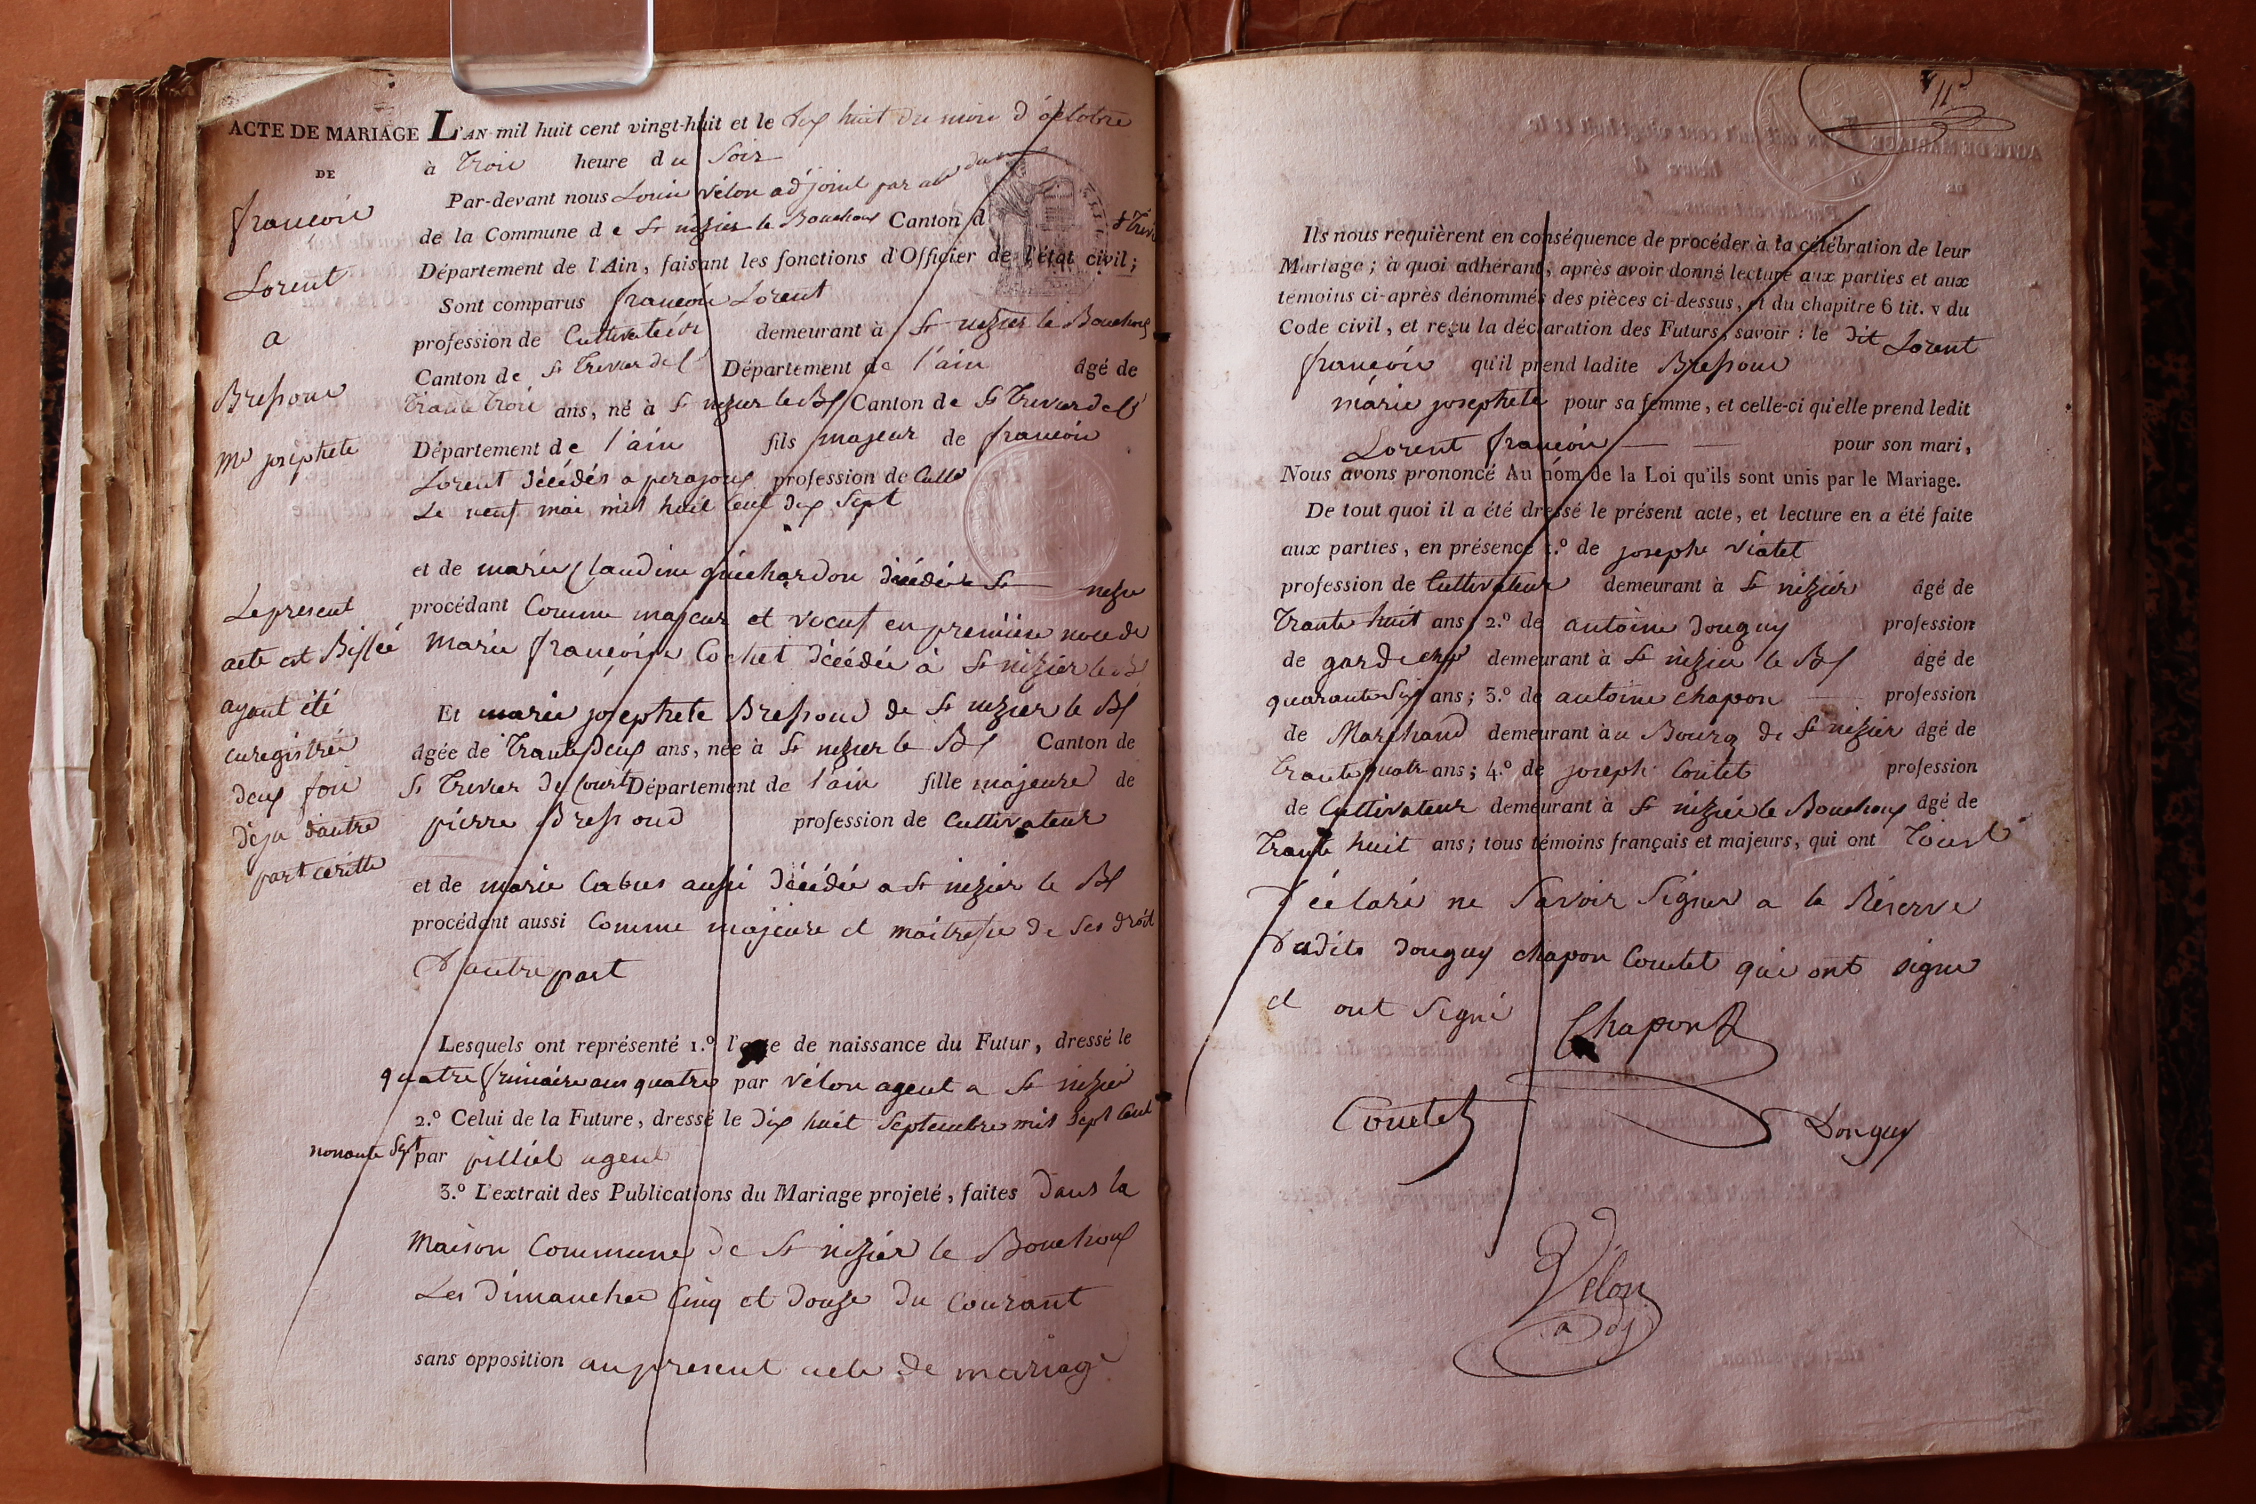 ACTE DE MARIAGE
DE
françois
Lorent
a
Bressoud
Me josephete
Le present
acte est Biffée
ayant été
enregistrée
deux fois
déja d'autre
part ecritte
L'AN mil huit cent vingt-huit et le dix huit du mois d'octobre
à trois heure du Soir
Par-devant nous Louis Vélon adjoint par
de la Commune de St nizier le Bouchoux Canton d
Département de l'Ain, faisant les fonctions d'Officier de l'état civil;
Sont comparus françois Lorent
profession de Cultivateur demeurant à St nizier le Bouchoux
Canton de St Trivier de Ct Département de l'ain âgé de
trante trois ans, né à St nizier le Bx Canton de St Trivier de Ct
Département de l'ain fils majeur de françois
Lorent décédés a perajoux profession de Cultr
Le neuf mai mil huit Cent dix Sept
et de marie Claudine guichardon décédée a St nizie
procédant Comme majeur et veuf en première noce de
Marie françoise Cochet décédée à St nizier le Bx
Et marie josephete Bressoud de St nizier le Bx
âgée de trante Deux ans, née à St nizier le Bx Canton de
St Trivier de Court Département de l'ain fille majeure de
pierre Bressoud profession de Cultivateur
et de marie Cabus aussi décédée a St nizier le Bx
procédant aussi Comme majeure et maîtresse de Ses droit
D'autre part
Lesquels ont représenté 1.º l'acte de naissance du Futur, dressé le
quatre frimaire an quatre par Vélon agent a St nizier
2.º Celui de la Future, dressé le dix huit Septembre mil Sept Cent
nonante Sept par pilliet agent
3.º L'extrait des Publications du Mariage projeté, faites Dans la
Maison Commune de St nizier le Bouchoux
Les Dimanche Cinq et douze du Courant
sans opposition au present acte de mariage
Ils nous requièrent en conséquence de procéder à la célébration de leur
Mariage; à quoi adhérant, après avoir donné lecture aux parties et aux
témoins ci-après dénommés des pièces ci-dessus, et du chapitre 6 tit. v du
Code civil, et reçu la déclaration des Futurs, savoir: le dit Lorent
françois qu'il prend ladite Bressoud
marie josephete pour sa femme, et celle-ci qu'elle prend ledit
Lorent françois pour son mari,
Nous avons prononcé Au nom de la Loi qu'ils sont unis par le Mariage.
De tout quoi il a été dressé le présent acte, et lecture en a été faite
aux parties, en présence 1.º de josephe Viatet
profession de Cultivateur demeurant à St nizier âgé de
trante huit ans; 2.º de antoine Douguy profession
de gardechp demeurant à St nizier le Bx âgé de
quarante Six ans; 3.º de antoine chapon profession
de Marchand demeurant àu Bourg de St nizier âgé de
trante quatr ans; 4.º de joseph Coutet profession
de Cultivateur demeurant à St nizier le Bouchoux âgé de
trante huit ans; tous témoins français et majeurs, qui ont tous
déclaré ne Savoir Signer a la Réserve
dudits Douguy chapon Coutet qui ont signé
et ont Signé
Chapon
Coutet
Douguy
Vélon
adj